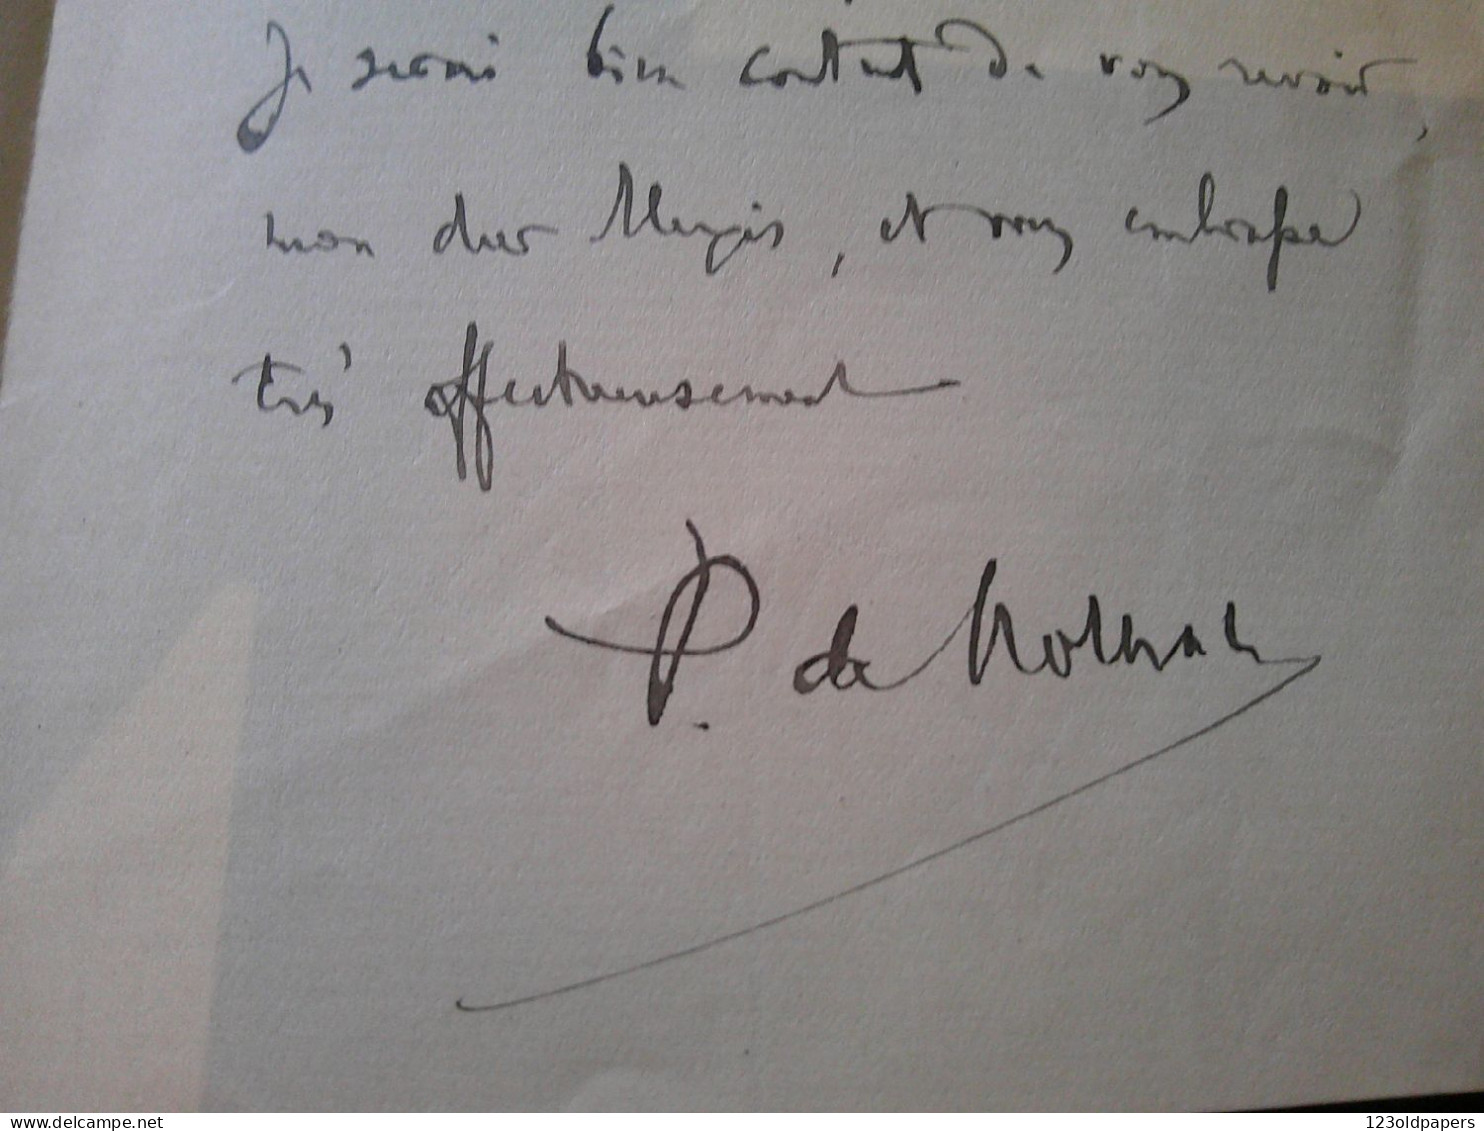 Je serais bien content de vous revoir,
mon cher , et vous embrasse
très affectueusement
P. de Nolhac
delcampe.net
123oldpapers